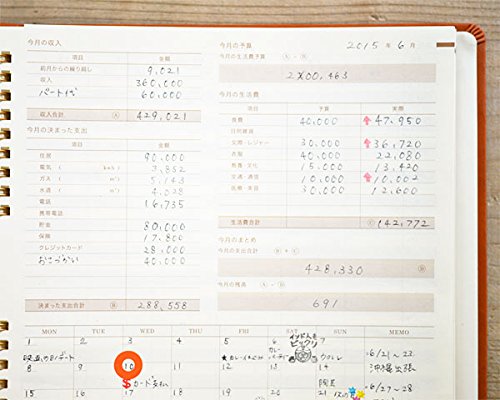 今月の収入
項目 金額
前月からの繰り越し 9,021
収入 360,000
パート代 60,000
収入合計 Ⓐ 429,021
今月の決まった支出
項目 金額
住居 90,000
電気 3,852
ガス 5,143
水道 4,028
電話 16,735
携帯電話
貯金 80,000
保険 17,800
クレジットカード 28,000
おこづかい 40,000
決まった支出合計 Ⓑ 285,558
2015 年 6 月
今月の予算
今月の生活費予算 Ⓐ - Ⓑ
今月の生活費
項目 予算 実際
食費 40,000 47,950
日用雑貨
交際・レジャー 30,000 36,720
衣服 40,000 22,080
教育・文化 15,000 13,420
交通・通信 10,000 10,002
医療・美容 30,000 12,600
生活費合計 Ⓒ 142,772
今月のまとめ
今月の支出合計 Ⓑ + Ⓒ
428,330
今月の残高 Ⓐ - Ⓓ
691
MON TUE WED THU FRI SAT SUN MEMO
1 2 3 4 5 6 7
カレー
6/21~23
8 9 10 11 12 13 14
沖縄出張
$カード支払
15 16 17 18 19 20 21
6/27~28